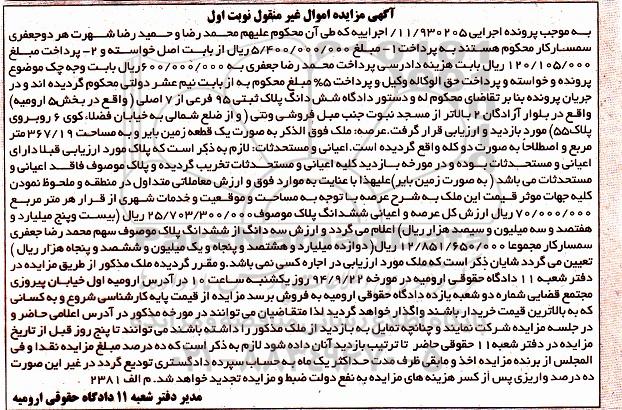 آگهی مزایده اموال غیر منقول نوبت اول
به موجب پرونده اجرایی ۱۱/۹۳۰۲۰۵/ اجراییه که طی آن محکوم علیهم محمد رضا و حمید رضا شهرت هر دو جعفری
سمسارکار محکوم هستند به پرداخت ۱- مبلغ ۵/۴۰۰/۰۰۰/۰۰۰ ریال از بابت اصل خواسته و ۲- پرداخت مبلغ
۱۲۰/۱۰۵/۰۰۰ ریال بابت هزینه دادرسی پرداخت محمد رضا جعفری به ۶۰۰/۰۰۰/۰۰۰ ریال بابت وجه چک موضوع
پرونده و خواسته و پرداخت حق الوکاله وکیل و پرداخت ۵% مبلغ محکوم به از بابت نیم عشر دولتی محکوم گردیده اند و در
جریان پرونده بنا بر تقاضای محکوم له و دستور دادگاه شش دانگ پلاک ثبتی ۹۵ فرعی از ۷ اصلی ( واقع در بخش۵ ارومیه)
واقع در بلوار آزادگان ۲ بالاتر از مسجد نبوت جنب مبل فروشی ونتی ( و از ضلع شمالی به خیابان فضلاء کوی ۶ روبروی
پلاک۵۵) مورد بازدید و ارزیابی قرار گرفت.عرصه: ملک فوق الذکر به صورت یک قطعه زمین بایر و به مساحت ۳۶۷/۱۹ متر
مربع و اصطلاحاً به صورت دو کله واقع گردیده است. اعیانی و مستحدثات: لازم به ذکر است که پلاک مورد ارزیابی قبلا دارای
اعیانی و مستحدثات بوده و در مورخه بازدید کلیه اعیانی و مستحدثات تخریب گردیده و پلاک موصوف فاقد اعیانی و
مستحدثات می باشد ( به صورت زمین بایر)علیهذا با عنایت به موارد فوق و ارزش معاملاتی متداول در منطقه و ملحوظ نمودن
کلیه جهات موثر قیمت این ملک به شرح عرصه با توجه به مساحت و موقعیت و خدمات شهری از قرار هر متر مربع
۷۰/۰۰۰/۰۰۰ ریال ارزش کل عرصه و اعیانی ششدانگ پلاک موصوف ۲۵/۷۰۳/۳۰۰/۰۰۰ ریال (بیست وپنج میلیارد و
هفتصد و سه میلیون و سیصد هزار ریال) اعلام می گردد و ارزش سه دانگ از ششدانگ پلاک موصوف سهم محمد رضا جعفری
سمسارکار مجموعا ۱۲/۸۵۱/۶۵۰/۰۰۰ ریال(دوازده میلیارد و هشتصد و پنجاه و یک میلیون و ششصد و پنجاه هزار ریال )
تعیین می گردد شایان ذکر است که ملک مورد ارزیابی در اجاره کسی نمی باشد.و مقرر گردیده ملک مذکور از طریق مزایده در
دفتر شعبه ۱۱ دادگاه حقوقی ارومیه در مورخه ۹۴/۹/۲۲ روز یکشنبه ساعت ۱۰ در آدرس ارومیه اول خیابان پیروزی
مجتمع قضایی شماره دو شعبه یازده دادگاه حقوقی ارومیه به فروش برسد مزایده از قیمت پایه کارشناسی شروع و به کسانی
که به بالاترین قیمت خریدار باشند واگذار خواهد گردید لذا متقاضیان می توانند در مورخه مذکور در آدرس اعلامی حاضر و
در جلسه مزایده شرکت نمایند و چنانچه تمایل به بازدید از ملک مذکور را داشته باشند می توانند تا پنج روز قبل از تاریخ
مزایده در دفتر شعبه ۱۱ حقوقی حاضر تا ترتیب بازدید آنان داده شود لازم به ذکر است که ده درصد مبلغ مزایده نقدا و فی
المجلس از برنده مزایده اخذ و مابقی ظرف مدت حداکثر یک ماه به حساب سپرده دادگستری تودیع گردد در غیر این صورت
ده درصد واریزی پس از کسر هزینه های مزایده به نفع دولت ضبط و مزایده تجدید خواهد شد. م الف ۲۳۸۱
مدیر دفتر شعبه ۱۱ دادگاه حقوقی ارومیه